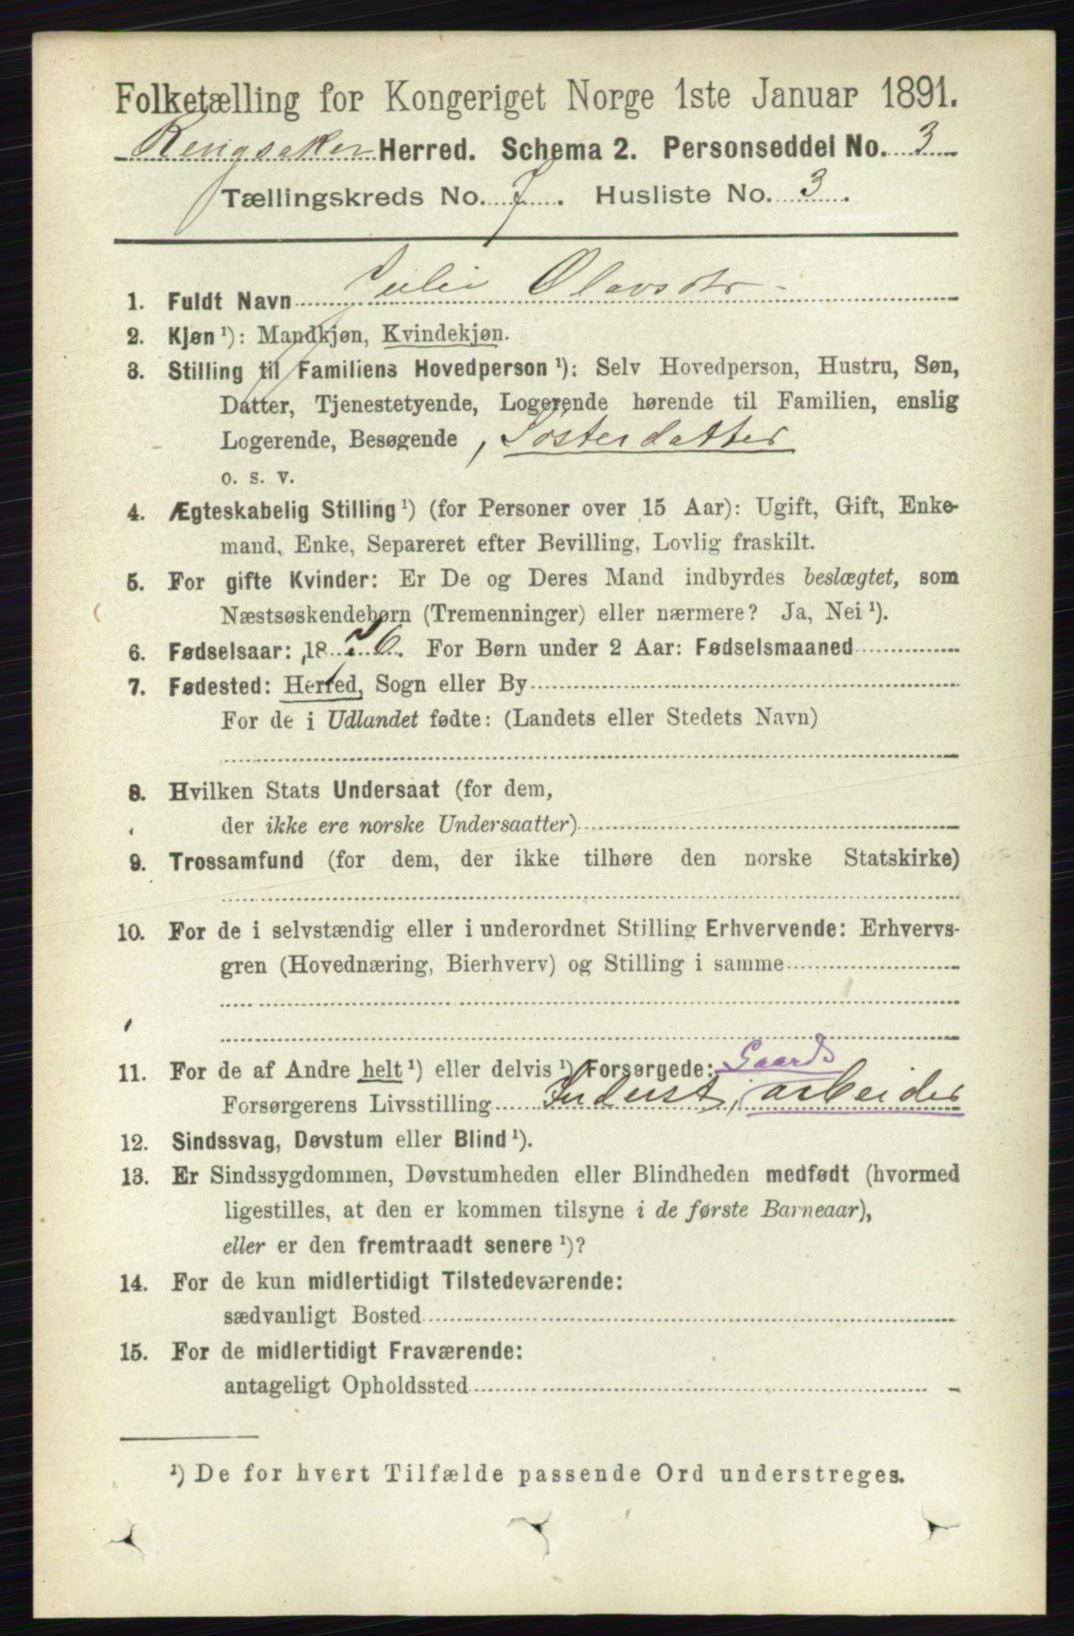 Folketælling for Kongeriget Norge 1ste Januar 1891.
Ringsaker Herred. Schema 2. Personseddel No. 3
Tællingskreds No. 7. Husliste No. 3.
1. Fuldt Navn Julie Olavsdtr
2. Kjøn ¹): Mandkjøn, Kvindekjøn.
3. Stilling til Familiens Hovedperson ¹): Selv Hovedperson, Hustru, Søn,
Datter, Tjenestetyende, Logerende hørende til Familien, enslig
Logerende, Besøgende, Søsterdatter
o. s. v.
4. Ægteskabelig Stilling ¹) (for Personer over 15 Aar): Ugift, Gift, Enke-
mand, Enke, Separeret efter Bevilling, Lovlig fraskilt.
5. For gifte Kvinder: Er De og Deres Mand indbyrdes beslægtet, som
Næstsøskendebørn (Tremenninger) eller nærmere? Ja, Nei ¹).
6. Fødselsaar: 1876. For Børn under 2 Aar: Fødselsmaaned
7. Fødested: Herred, Sogn eller By
For de i Udlandet fødte: (Landets eller Stedets Navn)
8. Hvilken Stats Undersaat (for dem,
der ikke ere norske Undersaatter)
9. Trossamfund (for dem, der ikke tilhøre den norske Statskirke)
10. For de i selvstændig eller i underordnet Stilling Erhvervende: Erhvervs-
gren (Hovednæring, Bierhverv) og Stilling i samme
11. For de af Andre helt ¹) eller delvis ¹) Forsørgede: Gaards
Forsørgerens Livsstilling Inderst, arbeider
12. Sindssvag, Døvstum eller Blind ¹).
13. Er Sindssygdommen, Døvstumheden eller Blindheden medfødt (hvormed
ligestilles, at den er kommen tilsyne i de første Barneaar),
eller er den fremtraadt senere ¹)?
14. For de kun midlertidigt Tilstedeværende:
sædvanligt Bosted
15. For de midlertidigt Fraværende:
antageligt Opholdssted
¹) De for hvert Tilfælde passende Ord understreges.